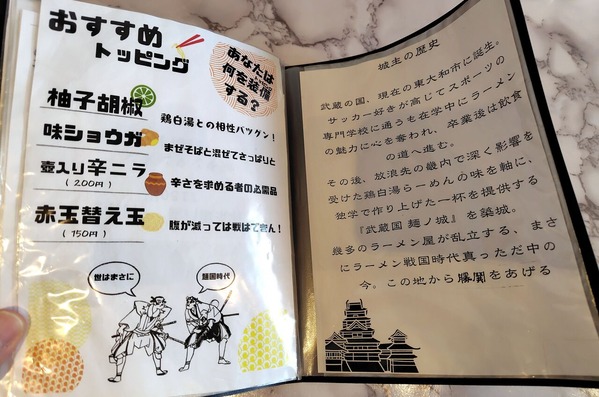 おすすめ
トッピング
あなたは
何を装備
する?
柚子胡椒
鶏白湯との相性バツグン!
味ショウガ
まぜそばと混ぜてさっぱりと
壺入り辛ニラ
(200円)
辛さを求める者の必需品
赤玉替え玉
(150円)
腹が減っては戦はできん!
世はまさに
麺国時代
城主の歴史
武蔵の国、現在の東大和市に誕生。
サッカー好きが高じてスポーツの
専門学校に通うも在学中にラーメン
の魅力に心を奪われ、卒業後は飲食
の道へ進む。
その後、放浪先の畿内で深く影響を
受けた鶏白湯らーめんの味を軸に、
独学で作り上げた一杯を提供する
『武蔵国 麺ノ城』を築城。
幾多のラーメン屋が乱立する、まさ
にラーメン戦国時代真っただ中の
今。この地から勝鬨をあげる